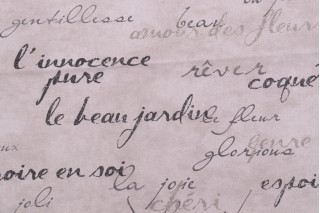 gentillesse beau
amour des fleur
l'innocence rêver
pure coqué
le beau jardin le fleur
glorious
oire en soi la joie espoi
joli chéri